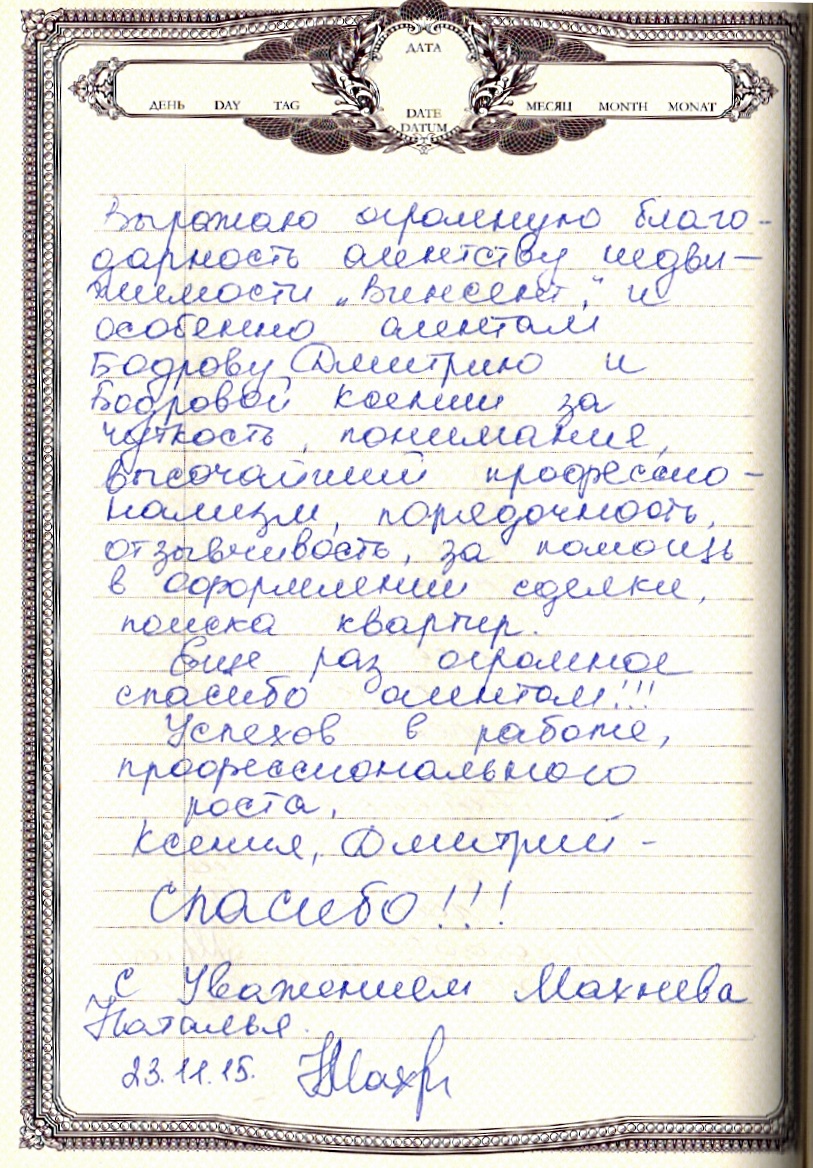 ДАТА
ДЕНЬ DAY TAG DATE МЕСЯЦ MONTH MONAT
DATUM
Выражаю огромную благо-
дарность агентству недви-
жимости „Винсент," и
особенно агентам
Бодрову Дмитрию и
Бобровой Ксении за
чуткость, понимания,
высочайший профессио-
нализм, порядочность,
отзывчивость, за помощь
в оформлении сделки,
поиска квартир.
Еще раз огромное
спасибо агентам!!!
Успехов в работе,
профессионального
роста,
Ксения, Дмитрий -
Спасибо!!!
С Уважением Махнева
Наталья.
23.11.15.